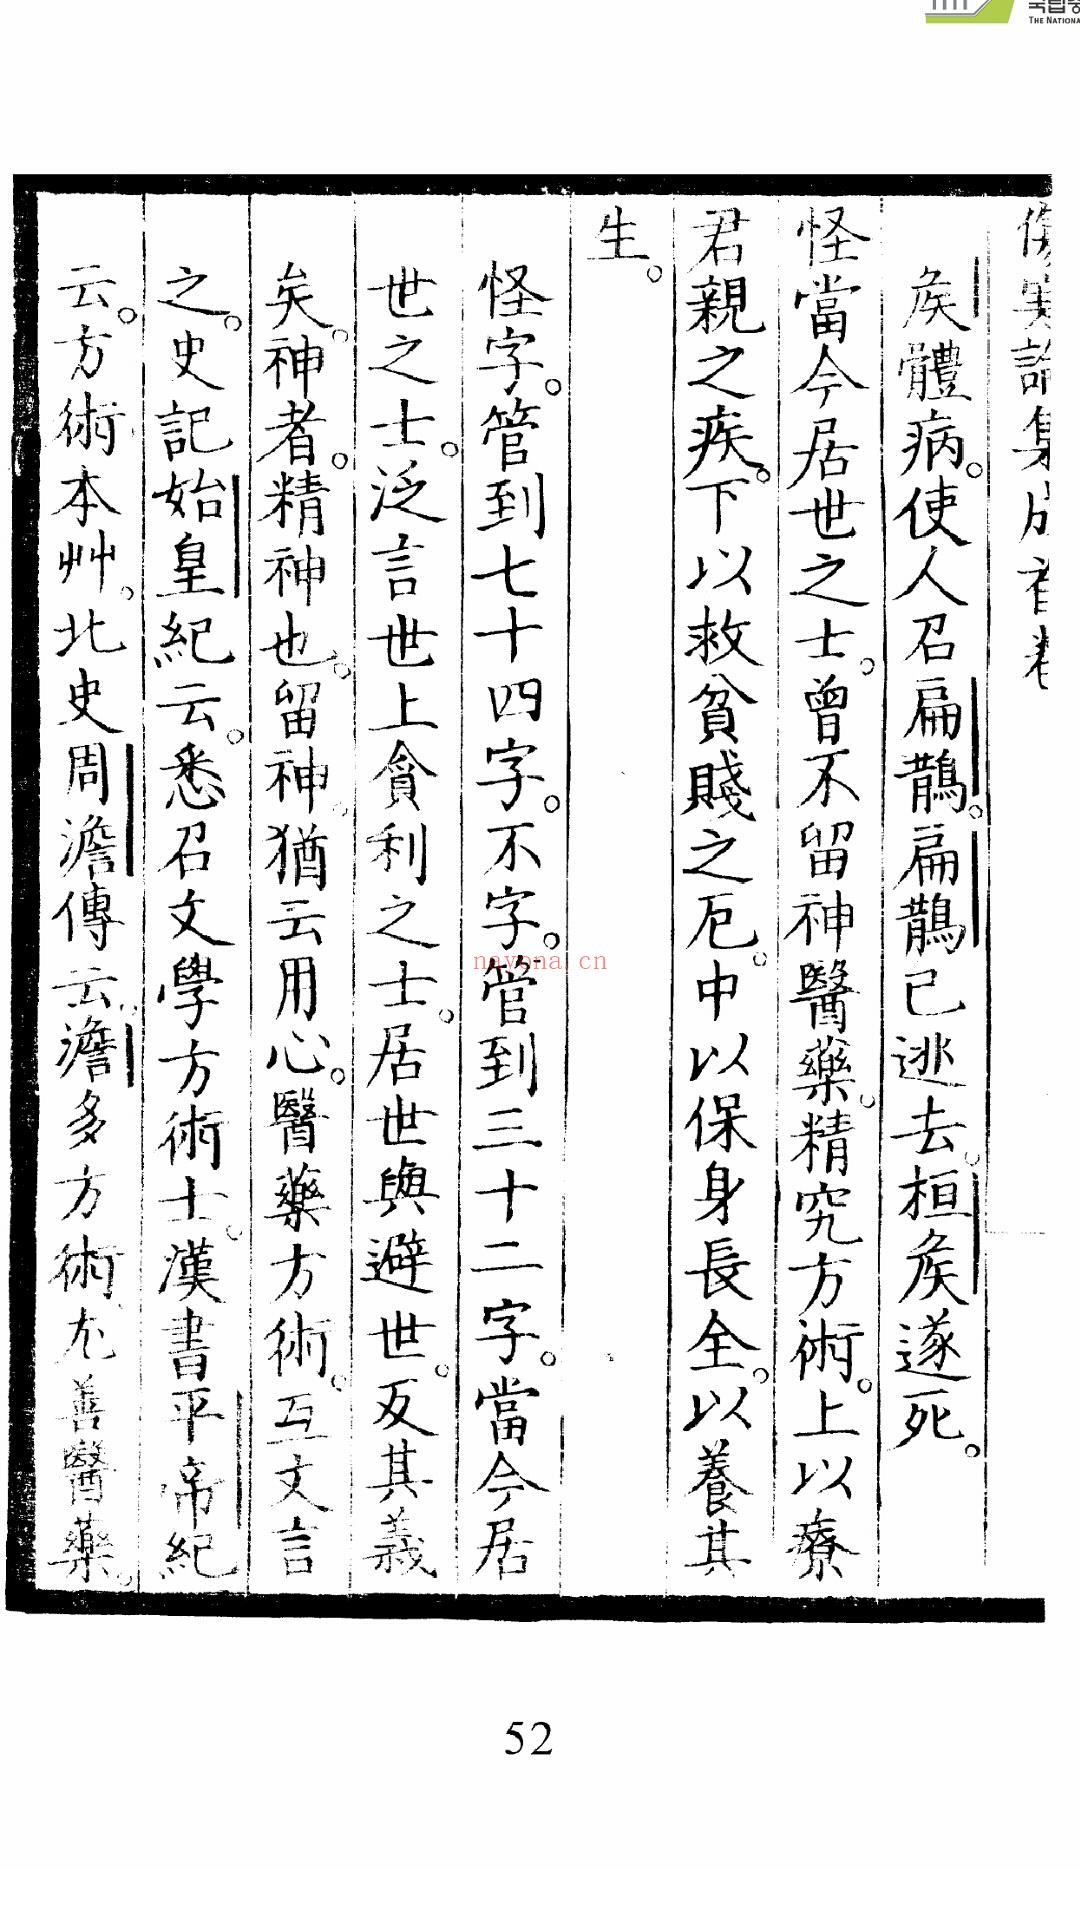 국립중
THE NATIONA
傷寒論集成首卷
矦體病。使人召扁鵲。扁鵲已逃去。桓矦遂死。
怪當今居世之士。曾不留神醫藥。精究方術。上以療
君親之疾。下以救貧賤之厄。中以保身長全。以養其
生。
怪字。管到七十四字。不字。管到三十二字。當今居
世之士。泛言世上貪利之士。居世與避世。反其義
矣。神者。精神也。留神。猶云用心。醫藥方術。互文言
之。史記始皇紀云。悉召文學方術士。漢書平帝紀
云。方術本艸。北史周澹傳云。澹多方術尤善醫藥。
nayona.cn
52